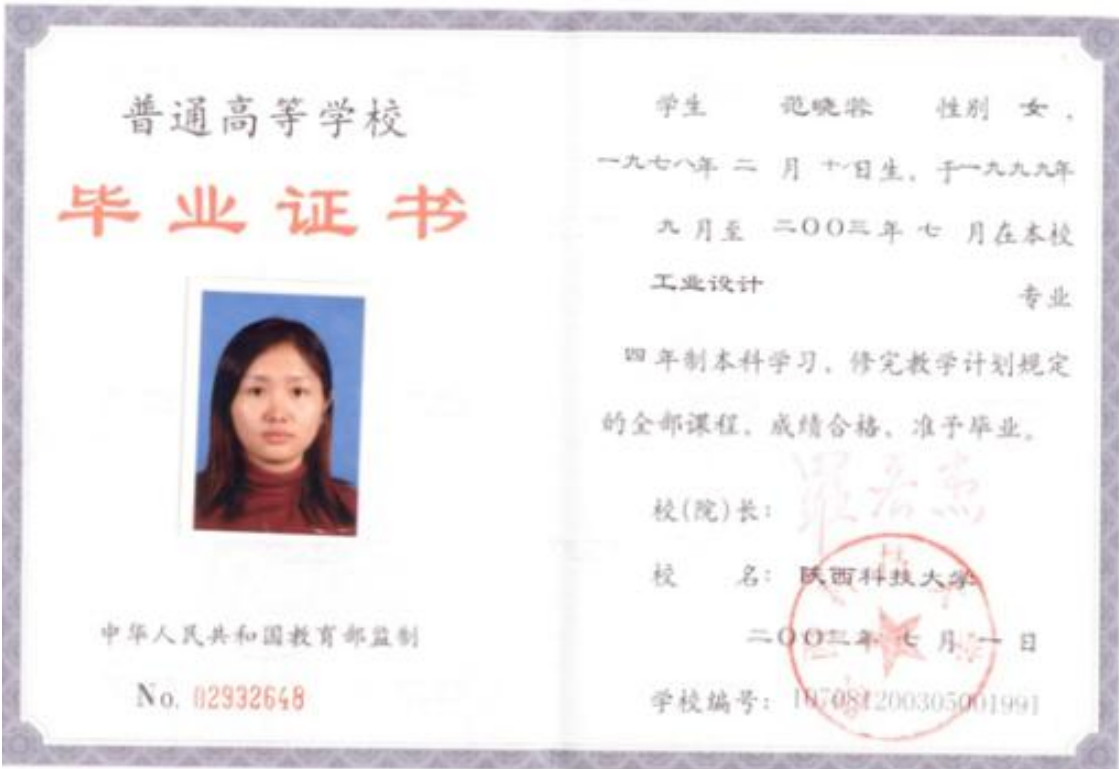 普通高等学校
毕业证书
中华人民共和国教育部监制
No. 02932648
学生 范晓 性别 女，
一九七八年 二 月 十 日生，于一九九九年
九 月至 二〇〇三年 七 月在本校
工业设计 专业
四 年制本科学习，修完教学计划规定
的全部课程，成绩合格，准予毕业。
校(院)长：
校 名： 陕西科技大学
二〇〇三年 七 月 一 日
学校编号： 107081200305001991